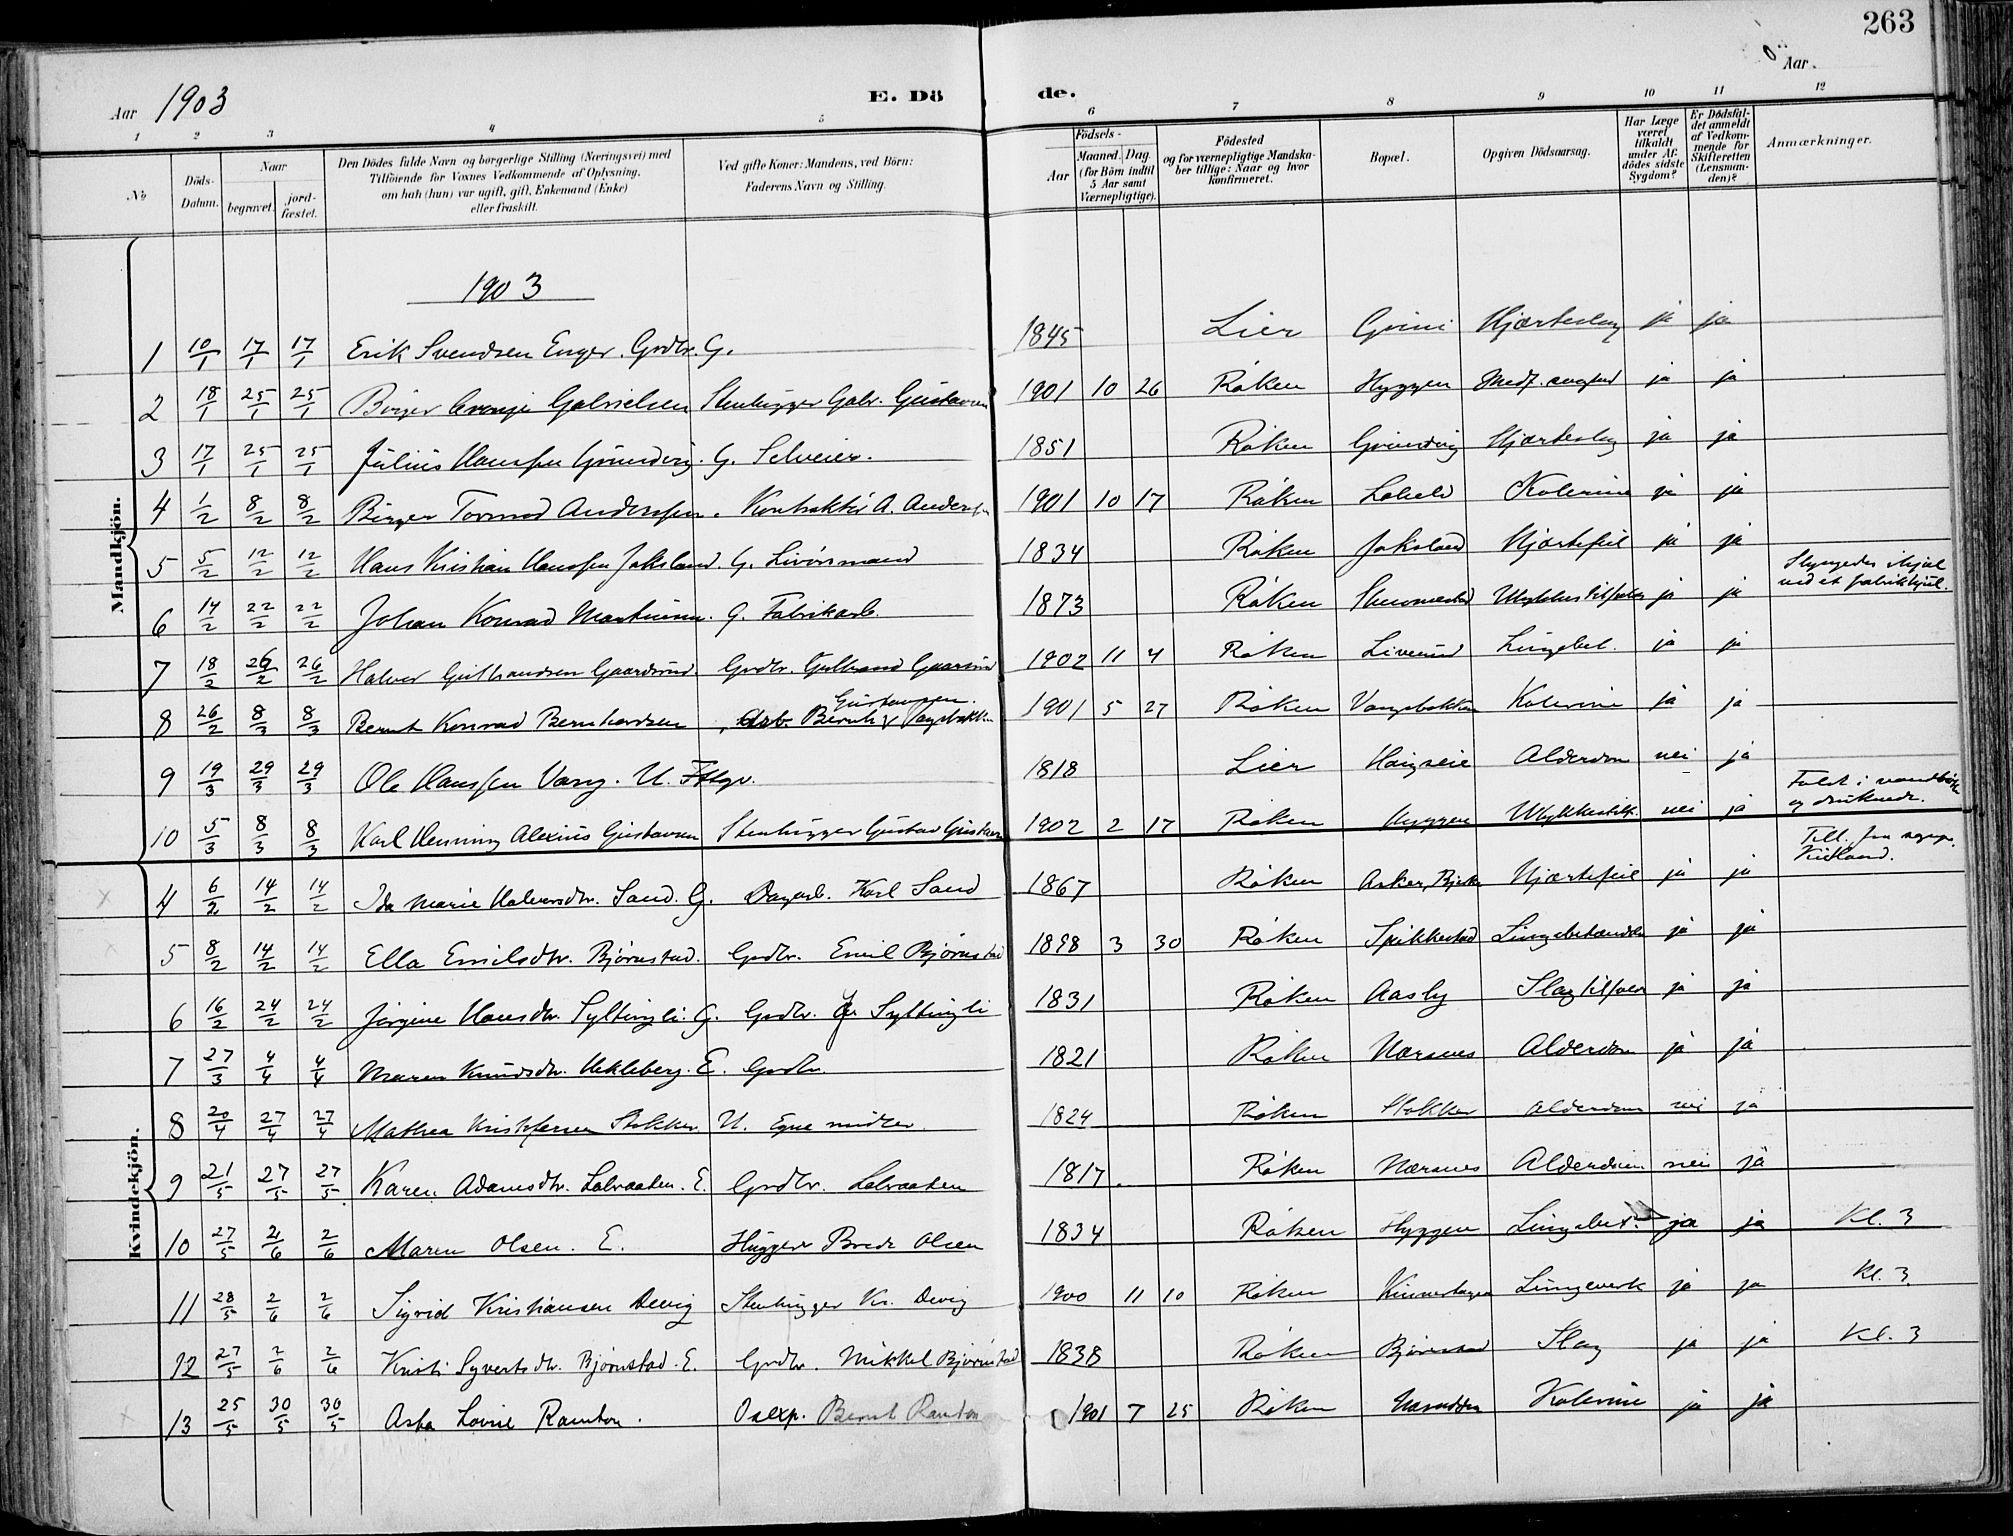 263
Aar 1903
E. Dö de.
Aar
1 2 3 4 5 6 7 8 9 10 11 12
No
Döds-Datum.
Naar begravet. jord-fæstet.
Den Dödes fulde Navn og borgerlige Stilling (Næringsvei) med
Tilföiende for Voxnes Vedkommende af Oplysning,
om han (hun) var ugift, gift, Enkemand (Enke)
eller fraskilt.
Ved gifte Koner: Mandens, ved Börn:
Faderens Navn og Stilling.
Födsels-
Aar Maaned. Dag.
(for Börn indtil 5 Aar samt Værnepligtige).
Födested
og for værnepligtige Mandska-
ber tillige: Naar og hvor
konfirmeret.
Bopæl.
Opgiven Dödsaarsag.
Har Læge været tilkaldt under Afdödes sidste Sygdom?
Er Dödsfaldet anmeldt af Vedkommende for Skifteretten (Lensmanden)?
Anmærkninger.
Mandkjön.
1903
1 10/1 17/1 17/1 Erik Svendsen Enger. Grdbr. G. 1845 Lier Grini Hjærteslag ja ja
2 18/1 25/1 25/1 Birger Gabrielsen Stenhugger Gabr. Gustavsen 1901 10 26 Røken Hyggen Medf. ja ja
3 17/1 25/1 25/1 Julius Hanssen Grundvig. G. Selveier. 1851 Røken Grundvig Hjærteslag ja ja
4 1/2 8/2 8/2 Birger Tormod Anderssen. Kontraktør A. Anderssen 1901 10 17 Røken Kolerine ja ja
5 5/2 12/2 12/2 Hans Kristian Hanssen Jaksland. G. Livørsmand 1834 Røken Jaksland Hjærtefeil ja ja
6 14/2 22/2 22/2 Johan Konrad Martinsen. G. Fabrikarb. 1873 Røken Ulykkestilfælde ja ja Slyngedes ihjel
ved et fabrikhjul.
7 18/2 26/2 26/2 Halvor Gulbrandsen Gaardsrud. Grdbr. Gulbrand Gaardsrud 1902 11 4 Røken Liverud Lungebet. ja ja
8 26/2 8/3 8/3 Bernt Konrad Bernhardsen Arb. Bernh. Vangsbakken 1901 5 27 Røken Vangsbakken Kolerine ja ja
9 19/3 29/3 29/3 Ole Hanssen Vang. U. 1818 Lier Haugseie Alderdom nei ja
10 5/3 8/3 8/3 Karl Henning Alexius Gustavsen Stenhugger Gustav Gustavsen 1902 2 17 Røken Hyggen Ulykkestilf. nei ja Faldt i
og druknede.
Kvindekjön.
4 6/2 14/2 14/2 Ida Marie Halvorsdtr. Sand. G. Dagarb. Karl Sand 1867 Røken Asker, Hjærtefeil ja ja Till. fra
5 8/2 14/2 14/2 Ella Emilsdtr. Bjørnstad. Grdbr. Emil Bjørnstad 1898 3 30 Røken Spikkestad Lungebetændelse ja ja
6 16/2 24/2 24/2 Jørgine Hansdtr. Syltingli. G. Grdbr. Syltingli 1831 Røken Aasly Slagtilfælde ja ja
7 27/3 4/4 4/4 Maren Knudsdtr. Hekleberg. E. Grdbr. 1821 Røken Nærsnes Alderdom ja ja
8 20/4 27/4 27/4 Mathea Kristofersen Stokker U. Egne midler. 1824 Røken Stokker Alderdom nei ja
9 21/5 27/5 27/5 Karen Adamsdtr. Lalvraaten. E. Grdbr. Lalvraaten 1817 Røken Nærsnes Alderdom nei ja
10 27/5 2/6 2/6 Maren Olsen. E. Hugger Brede Olsen 1834 Røken Hyggen Lungebet. ja ja Kl. 3
11 28/5 2/6 2/6 Sigrid Kristiansen Devig Stenhugger Kr. Devig 1900 11 10 Røken ja ja Kl. 3
12 27/5 2/6 2/6 Kristi Syvertsdtr. Bjørnstad. E. Grdbr. Mikkel Bjørnstad 1838 Røken Bjørnstad Slag ja ja Kl. 3
13 25/5 30/5 30/5 Asta Lovise Ramton. Bernt Ramton 1901 7 25 Røken Kolerine ja ja